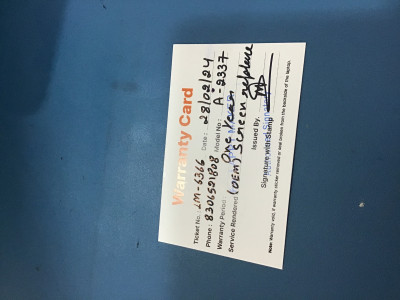 Warranty Card
Ticket No.: LM-6366 Date: 28/02/24
Phone: 8306591808 Model No: A-2337
Warranty Period: One Year
Service Rendered (OEM) Screen replace
Issued By.
Signature with Stamp
Note: Warranty void, if warranty sticker removed or seal broken from the backside of the laptop.